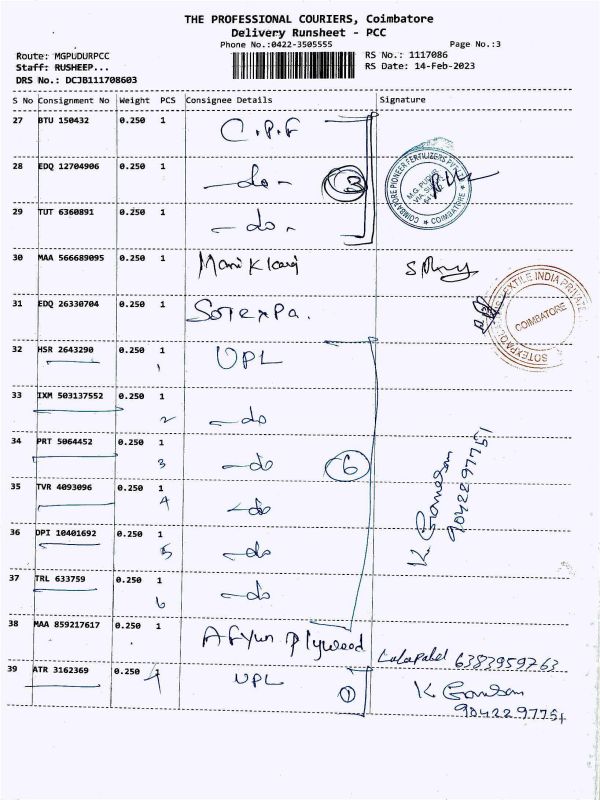 THE PROFESSIONAL COURIERS, Coimbatore
Delivery Runsheet - PCC
Phone No.:0422-3505555
Page No.:3
Route: MGPUDURPCC
Staff: RUSHEEP...
DRS No.: DCJB111708603
RS No.: 1117086
RS Date: 14-Feb-2023
S No Consignment No Weight PCS Consignee Details Signature
27 BTU 150432 0.250 1 C.P.F
28 EDQ 12704906 0.250 1 -do- 3
29 TUT 6360891 0.250 1 -do-
COIMBATORE PIONEER FERTILIZERS
M.G. PUDUR
COIMBATORE
30 MAA 566689095 0.250 1
31 EDQ 26330704 0.250 1 Sotexpa.
TEXTILE INDIA PRIVATE
COIMBATORE
SOTEXPA
32 HSR 2643290 0.250 1 UPL
1
33 IXM 503137552 0.250 1 -do
2
34 PRT 5064452 0.250 1 -do 6
3
35 TVR 4093096 0.250 1 -do
4
36 DPI 10401692 0.250 1 -do
5
37 TRL 633759 0.250 1 -do
6
K
9042297751
38 MAA 859217617 0.250 1 Plywood 6383959763
39 ATR 3162369 0.250 1 UPL 1 K
9042297751